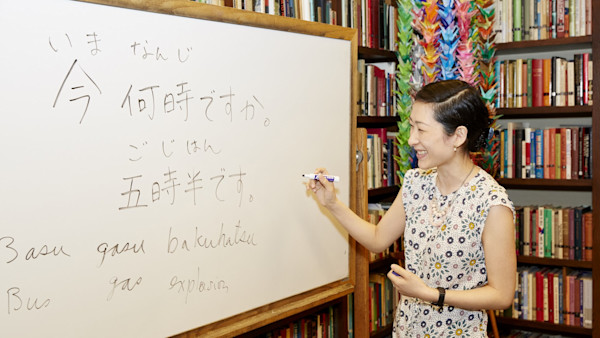 いま なんじ
今 何時ですか。
ごじはん
五時半です。
Basu gasu bakuhatsu
Bus gas explosion